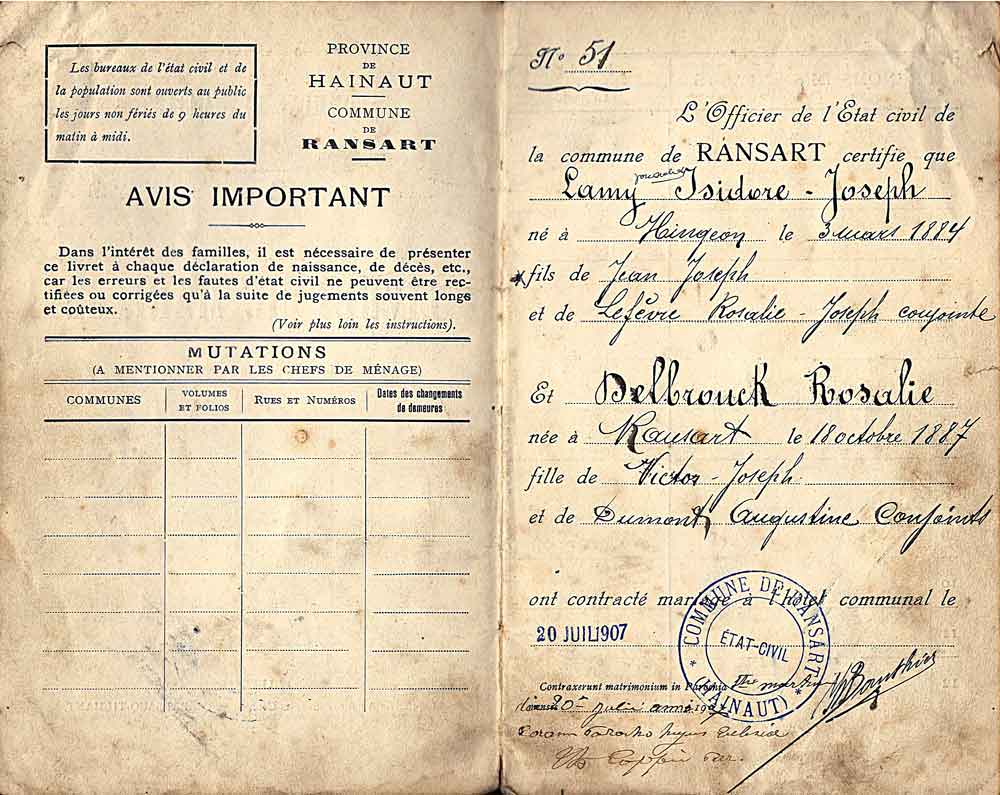 Les bureaux de l'état civil et de
la population sont ouverts au public
les jours non fériés de 9 heures du
matin à midi.
PROVINCE
DE
HAINAUT
COMMUNE
DE
RANSART
AVIS IMPORTANT
Dans l'intérêt des familles, il est nécessaire de présenter
ce livret à chaque déclaration de naissance, de décès, etc.,
car les erreurs et les fautes d'état civil ne peuvent être rec-
tifiées ou corrigées qu'à la suite de jugements souvent longs
et coûteux.
(Voir plus loin les instructions).
MUTATIONS
(A MENTIONNER PAR LES CHEFS DE MÉNAGE)
COMMUNES
VOLUMES
ET FOLIOS
RUES ET NUMÉROS
Dates des changements
de demeures
No 51
L'Officier de l'Etat civil de
la commune de RANSART certifie que
Lamy Isidore-Joseph
né à Hingeon le 3 mars 1884
fils de Jean Joseph
et de Lefèvre Rosalie-Joseph conjointe
Et Delbrouck Rosalie
née à Ransart le 18 octobre 1887
fille de Victor-Joseph
et de Dumont, Augustine Conjoints
ont contracté mariage à l'hôtel communal le
20 JUIL 1907
COMMUNE DE RANSART
ÉTAT-CIVIL
(HAINAUT)
Contraxerunt matrimonium in
20 julii anni 1907
Coram